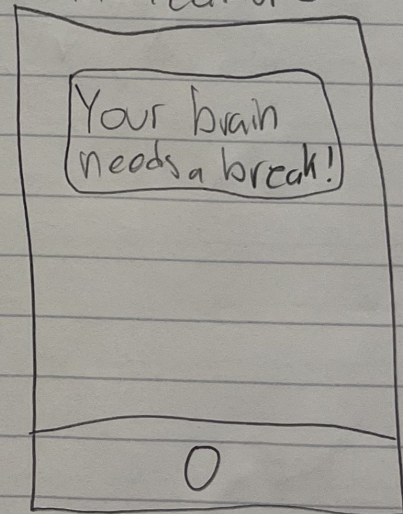 Your brain
needs a break!